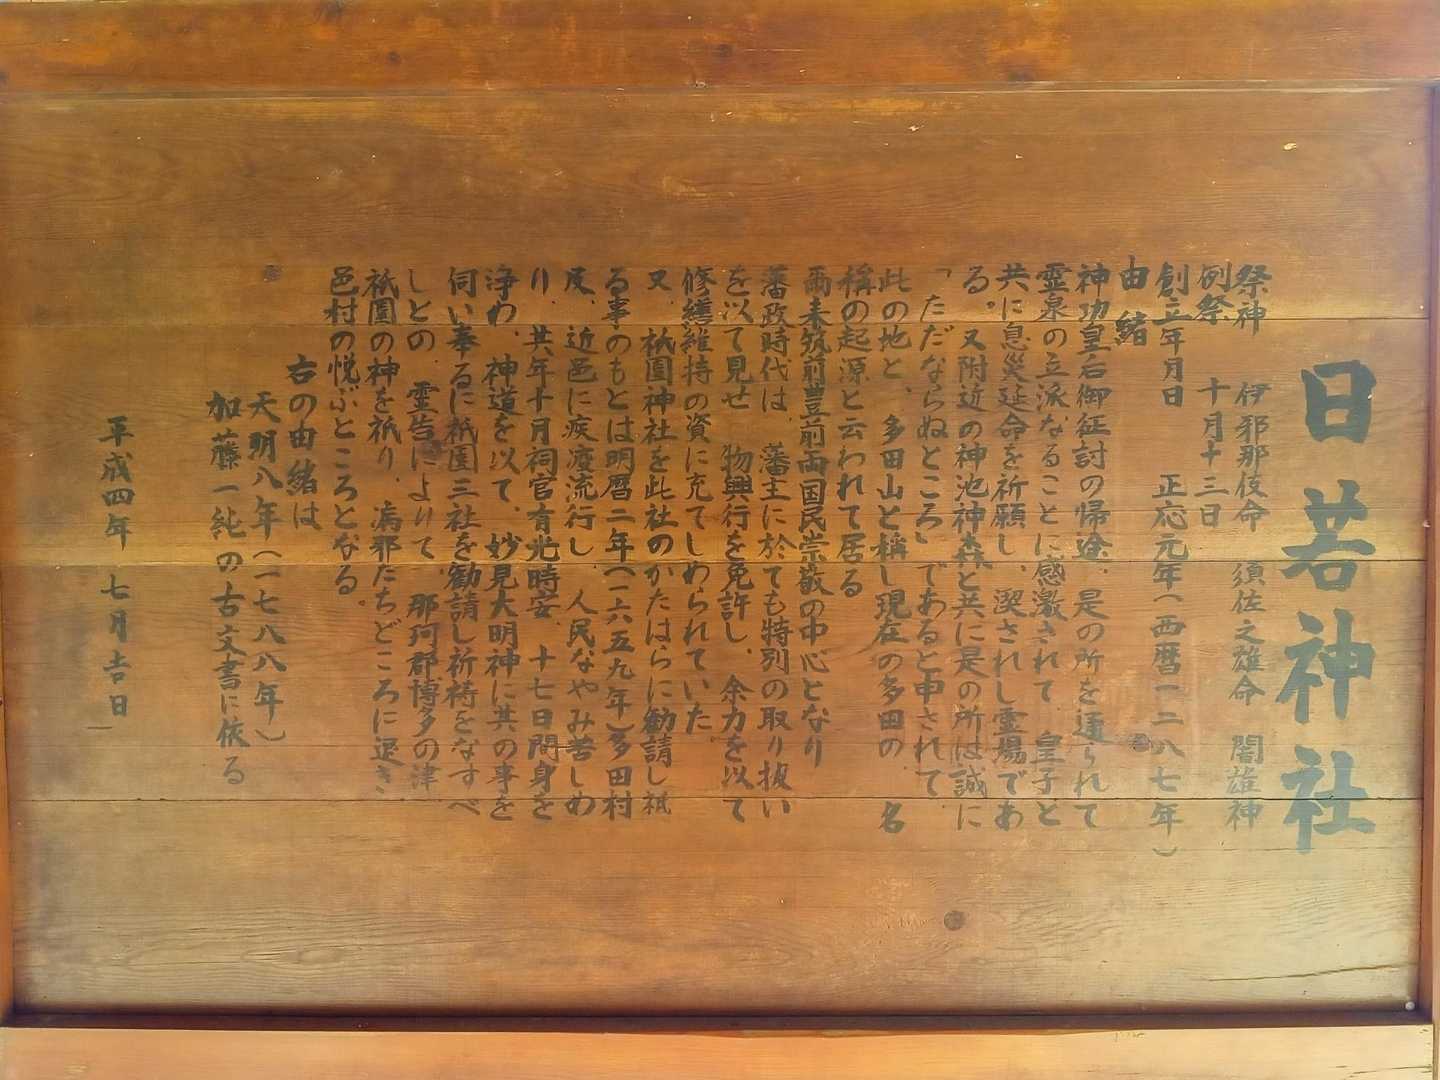 日若神社
祭神　伊邪那伎命　須佐之雄命　闇雄神
例祭　十月十三日
創立年月日　正応元年（西暦一二八七年）
由緒
神功皇后御征討の帰途、是の所を通られて
霊泉の立派なることに感激されて、皇子と
共に息災延命を祈願し、禊されし霊場であ
る。又附近の神池神森と共に是の所は誠に
「ただならぬところ」であると申されて、
此の地と、多田山と称し現在の多田の、名
称の起源と云われて居る
爾来筑前豊前両国民崇敬の中心となり
藩政時代は、藩主に於ても特別の取り抜い
を以て見せ　物興行を免許し、余力を以て
修繕維持の資に充てしめられていた。
又、祇園神社を此社のかたはらに勧請し祗
る事のもとは明暦二年（一六五九年）多田村
及、近邑に疾疫流行し、人民なやみ苦しめ
り、其年十月祠官有光時安、十七日間身を
浄め、神道を以て、妙見大明神に其の事を
伺い奉るに祇園三社を勧請し祈祷をなすべ
しとの、霊告によりて、那珂郡博多の津、
祇園の神を祇り、病邪たちどころに退き、
邑村の悦ぶところとなる。
右の由緒は
天明八年（一七八八年）
加藤一純の古文書に依る
平成四年　七月吉日